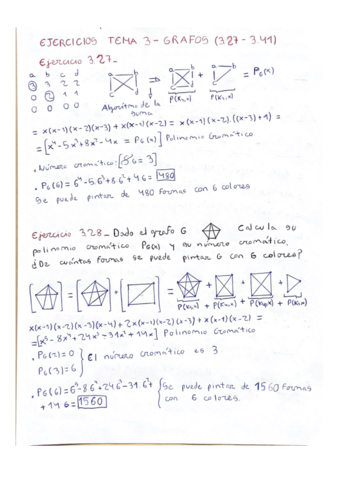 EJERCICIOS TEMA 3 - GRAFOS (3.27 - 3.41)
Ejercicio 3.27_
a b c d
3 3 2 2
0 2 1 1
0 0 0 0
a b
c d
Algoritmo de la suma
⇒ + = PG(x)
P(K4,x) P(K3,x)
= x(x-1)(x-2)(x-3) + x(x-1)(x-2) = x(x-1)(x-2)·((x-3)+1) =
= [x⁴-5x³+8x²-4x = PG(x)] Polinomio Cromático
. Número cromático: = 3
. PG(6) = 6⁴-5·6³+8·6²+4·6 = 480
Se puede pintar de 480 formas con 6 colores
Ejercicio 3.28_ Dado el grafo G Calcula su
polinomio cromático PG(x) y su número cromático,
¿De cuántas formas se puede pintar G con 6 colores?
[ ] = [ ] + [ ] = + + +
P(K5,x) P(K4,x) P(K4,x) P(K3,x)
x(x-1)(x-2)(x-3)(x-4) + 2x(x-1)(x-2)(x-3) + x(x-1)(x-2) =
= [x⁵-8x⁴+24x³-31x²+14x] Polinomio Cromático
. PG(2) = 0
. PG(3) = 6
El número cromático es 3
. PG(6) = 6⁵-8·6⁴+24·6³-31·6²+
+14·6 = 1560
Se puede pintar de 1560 formas
con 6 colores.